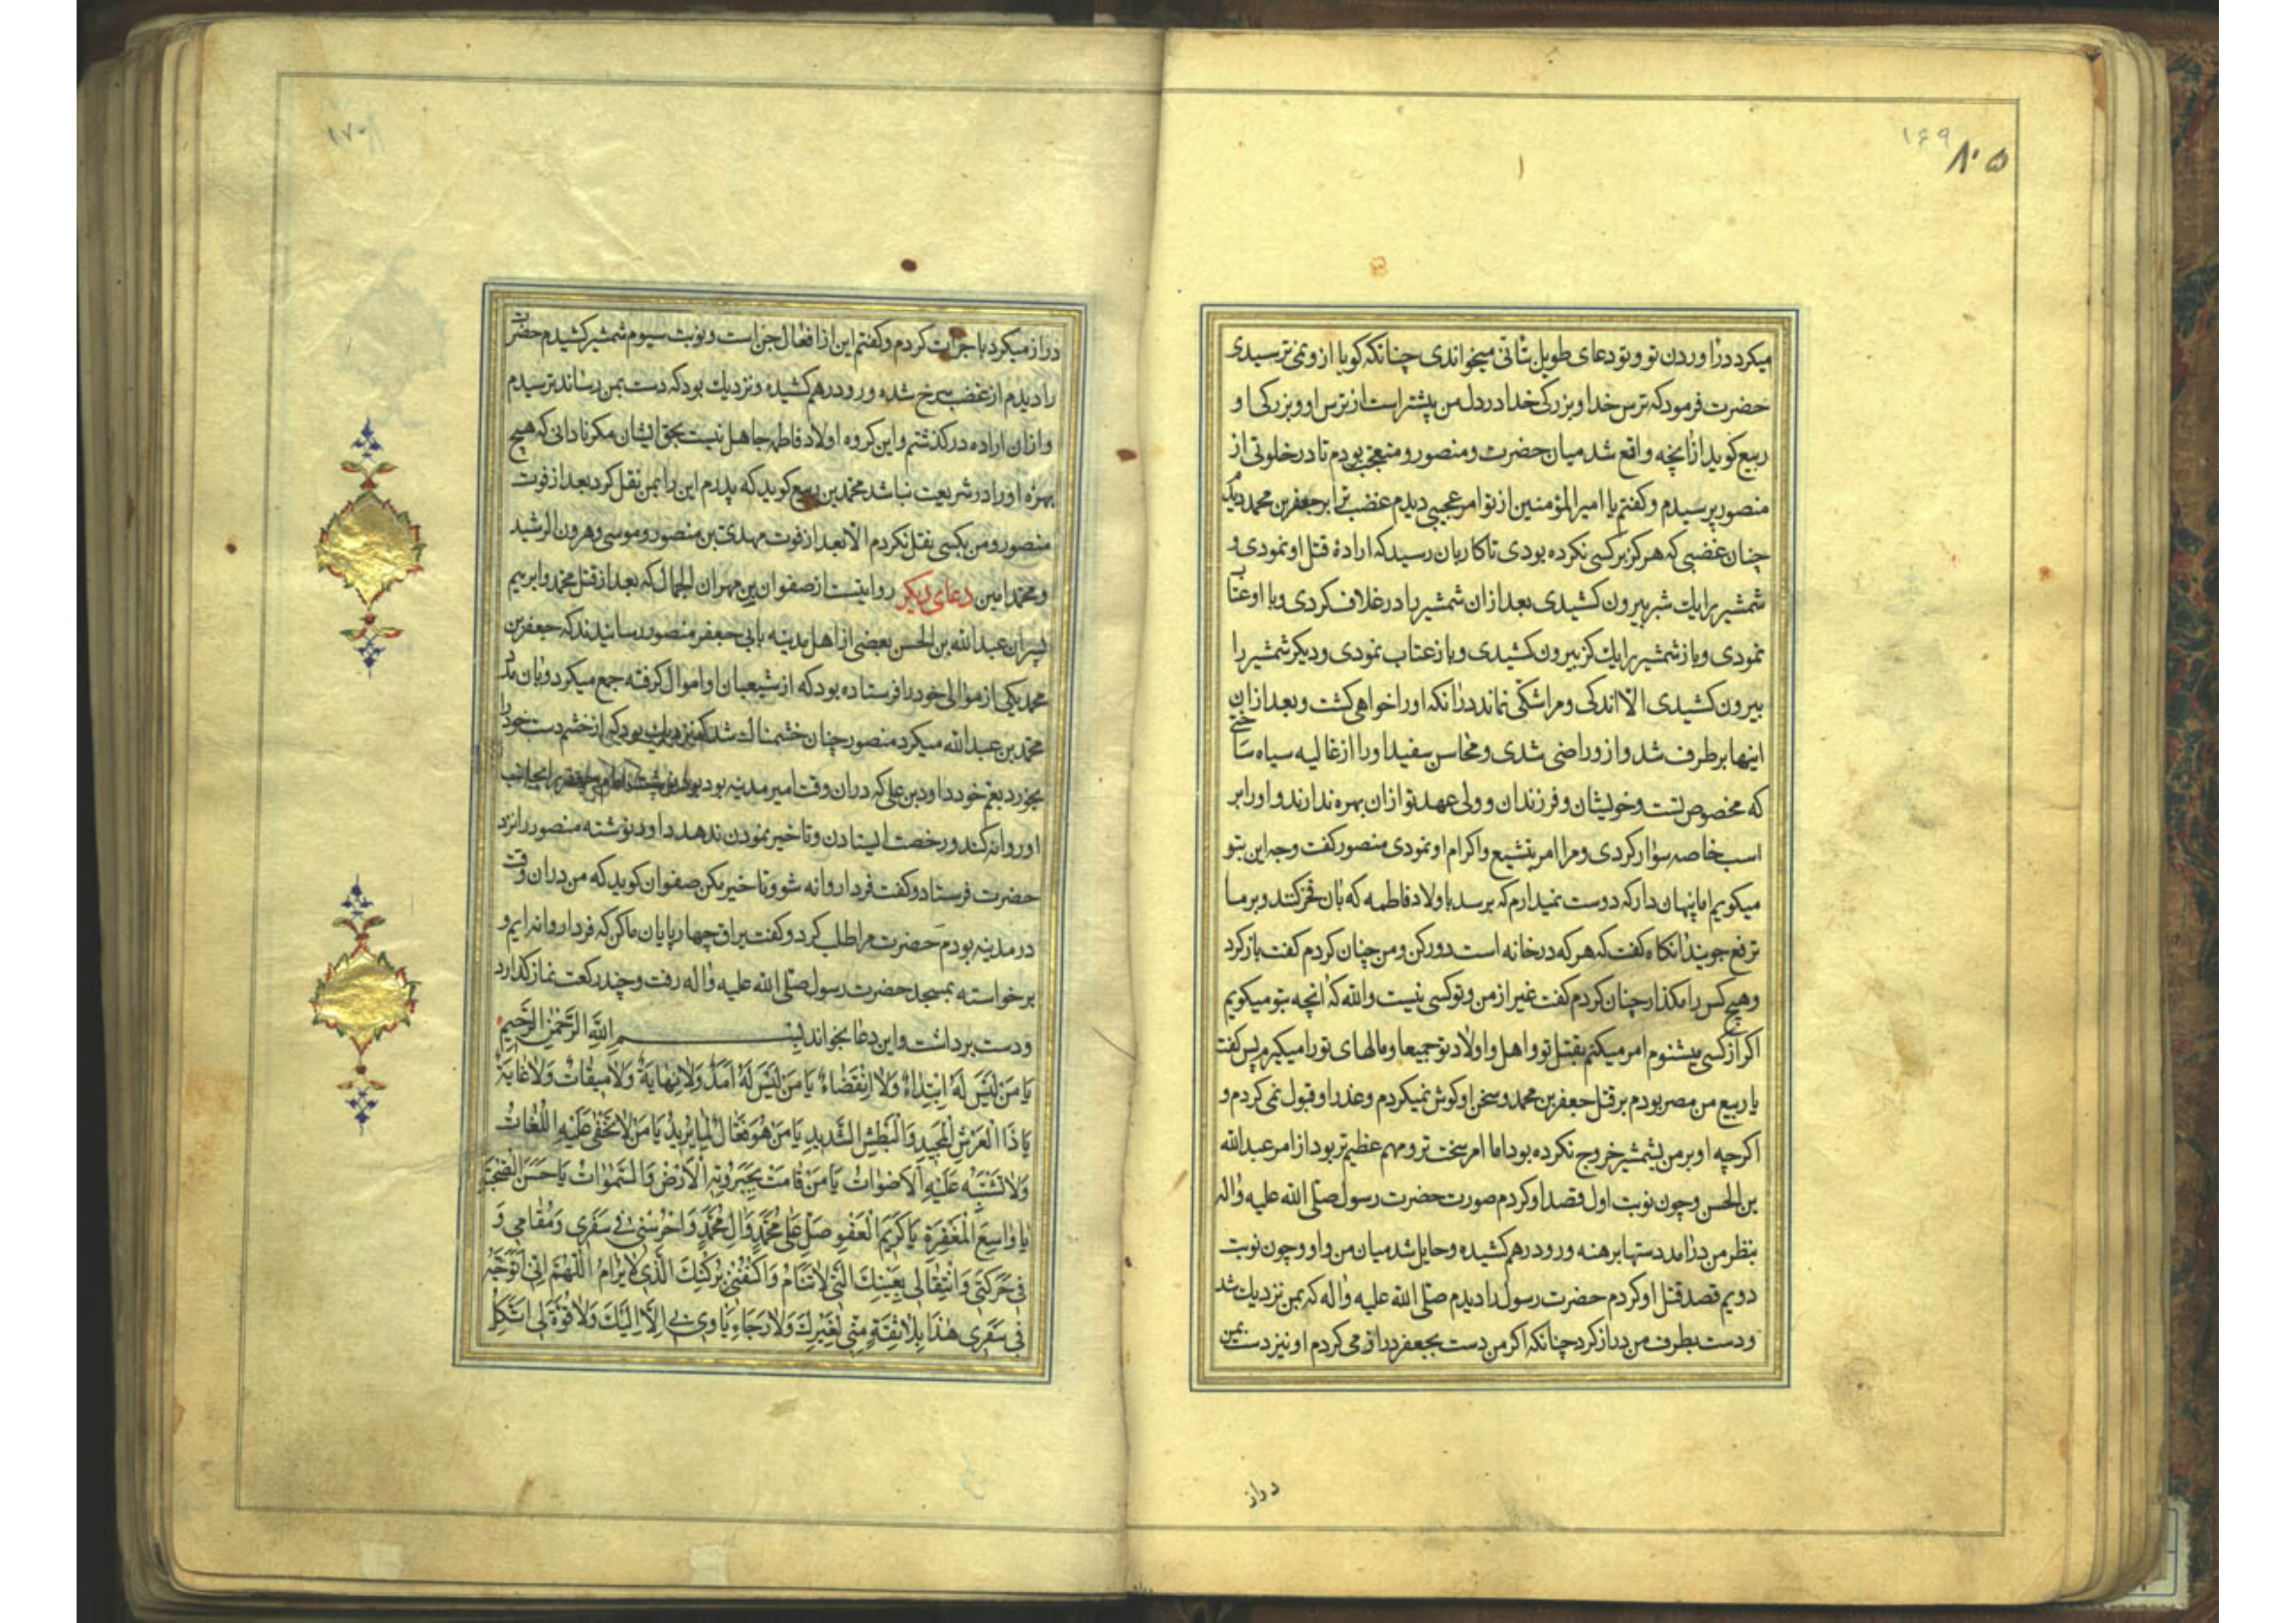 ۱۶۹
۸۰۵
میکرد دراوردن تو و تو دعای طویل بتأنی میخواندی چنانکه کویا ازو نمی ترسیدی
حضرت فرمود که ترس خدا و بزرکی خدا در دل من بیشتر است از ترس او و بزرکی او و
ربیع کوید ازانچه واقع شد میان حضرت و منصور و متعجب بودم تا در خلوتی از
منصور پرسیدم و کفتم یا امیرالمؤمنین از تو امر عجیبی دیدم غضب ترا بر جعفر بن محمد دیدم
چنان غضبی که هرکز بر کسی نکرده بودی تا کار بان رسید که ارادهٔ قتل او نمودی و
شمشیر را یك شبر بیرون کشیدی بعد ازان شمشیر را در غلاف کردی و با او عتاب
نمودی و باز شمشیر را یك کز بیرون کشیدی و باز عتاب نمودی و دیکر شمشیر را
بیرون کشیدی الا اندکی و مرا شکی نماند درانکه او را خواهی کشت و بعد ازان
اینها برطرف شد و ازو راضی شدی و محاسن سفید او را از غالیه سیاه ساختی
که مخصوص تست و خویشان و فرزندان و ولی عهد تو ازان بهره ندارند و او را بر
اسب خاصه سوار کردی و مرا امر بتشیع و اکرام او نمودی منصور کفت وجه این بتو
میکویم اما پنهان دار که دوست نمیدارم که برسد باولاد فاطمه که بان فخر کنند و بر ما
ترفع جویند انکاه کفت که هر که در خانه است دور کن و من چنان کردم کفت باز کرد
و هیچ کس را مکذار چنان کردم کفت غیر از من و تو کسی نیست والله که انچه بتو میکویم
اکر از کسی بشنوم امر میکنم بقتل تو و اهل و اولاد تو جمیعا و مالهای تو را میکیرم پس کفت
یا ربیع من مصر بودم بر قتل جعفر بن محمد و سخن او کوش نمیکردم و عذر او قبول نمی کردم و
اکرچه او بر من بشمشیر خروج نکرده بود اما امر سخت تر و مهم عظیم تر بود از امر عبدالله
بن الحسن و چون نوبت اول قصد او کردم صورت حضرت رسول صلی الله علیه واله
بنظر من درامد دستها برهنه و رو درهم کشیده و حایل شد میان من و او و چون نوبت
دویم قصد قتل او کردم حضرت رسول را دیدم صلی الله علیه واله که بمن نزدیك شد
و دست بطرف من دراز کرد چنانکه اکر من دست بجعفر دراز می کردم او نیز دست بمن
دراز
۱۷۰
دراز میکرد با جرات کردم و کفتم این از افعال جن است و نوبت سیوم شمشیر کشیدم حضرت
را دیدم از غضب سرخ شده و رو درهم کشیده و نزدیك بود که دست بمن رساند ترسیدم
و ازان اراده در کذشتم و این کروه اولاد فاطمه جاهل نیست بحق ایشان مکر نادانی که هیچ
بهره او را در شریعت نباشد محمد بن ربیع کوید که پدرم این را بمن نقل کرد بعد از فوت
منصور و من بکسی نقل نکردم الا بعد از فوت مهدی بن منصور و موسی و هرون الرشید
و محمد امین دعای دیکر روایتست از صفوان بن مهران الجمال که بعد از قتل محمد و ابرهیم
پسران عبدالله بن الحسن بعضی از اهل مدینه بابی جعفر منصور رسانیدند که جعفر بن
محمد یکی از موالی خود را فرستاده بود که از شیعیان او اموال کرفته جمع میکرد و بان مدد
محمد بن عبدالله میکرد منصور چنان خشمناك شد که نزدیك بود که از خشم دست خود را
بخورد بعم خود داود بن علی که دران وقت امیر مدینه بود
او روانه کند و رخصت ایستادن و تاخیر نمودن ندهد داود نوشته منصور را نزد
حضرت فرستاد و کفت فردا روانه شو و تاخیر مکن صفوان کوید که من دران وقت
در مدینه بودم حضرت مرا طلب کرد و کفت یراق چهارپایان ما کن که فردا روانه ایم و
برخواسته بمسجد حضرت رسول صلی الله علیه واله رفت و چند رکعت نماز کذارد
و دست برداشت و این دعا بخواند بِسْمِ اللّٰهِ الرَّحْمٰنِ الرَّحِیمِ
یَا مَنْ لَیْسَ لَهُ ابْتِدَاءٌ وَلَا انْقِضَاءٌ یَا مَنْ لَیْسَ لَهُ اَمَدٌ وَلَا نِهَایَةٌ وَلَا مِیقَاتٌ وَلَا غَایَةٌ
یَا ذَا الْعَرْشِ الْمَجِیدِ وَالْبَطْشِ الشَّدِیدِ یَا مَنْ هُوَ فَعَّالٌ لِمَا یُرِیدُ یَا مَنْ لَا تَخْفٰی عَلَیْهِ اللُّغَاتُ
وَلَا تَشْتَبِهُ عَلَیْهِ الْاَصْوَاتُ یَا مَنْ قَامَتْ بِجَبَرُوتِهِ الْاَرْضُ وَالسَّمٰوَاتُ یَا حَسَنَ الصُّحْبَةِ
یَا وَاسِعَ الْمَغْفِرَةِ یَا کَرِیمَ الْعَفْوِ صَلِّ عَلٰی مُحَمَّدٍ وَاٰلِ مُحَمَّدٍ وَاحْرُسْنِی فِی سَفَرِی وَمُقَامِی وَ
فِی حَرَکَتِی وَانْتِقَالِی بِعَیْنِكَ الَّتِی لَا تَنَامُ وَاکْنُفْنِی بِرُکْنِكَ الَّذِی لَا یُرَامُ اَللّٰهُمَّ اِنِّی اَتَوَجَّهُ
فِی سَفَرِی هٰذَا بِلَا ثِقَةٍ مِنِّی لِغَیْرِكَ وَلَا رَجَاءٍ یَاْوِی بِی اِلَّا اِلَیْكَ وَلَا قُوَّةَ لِی اَتَّکِلُ